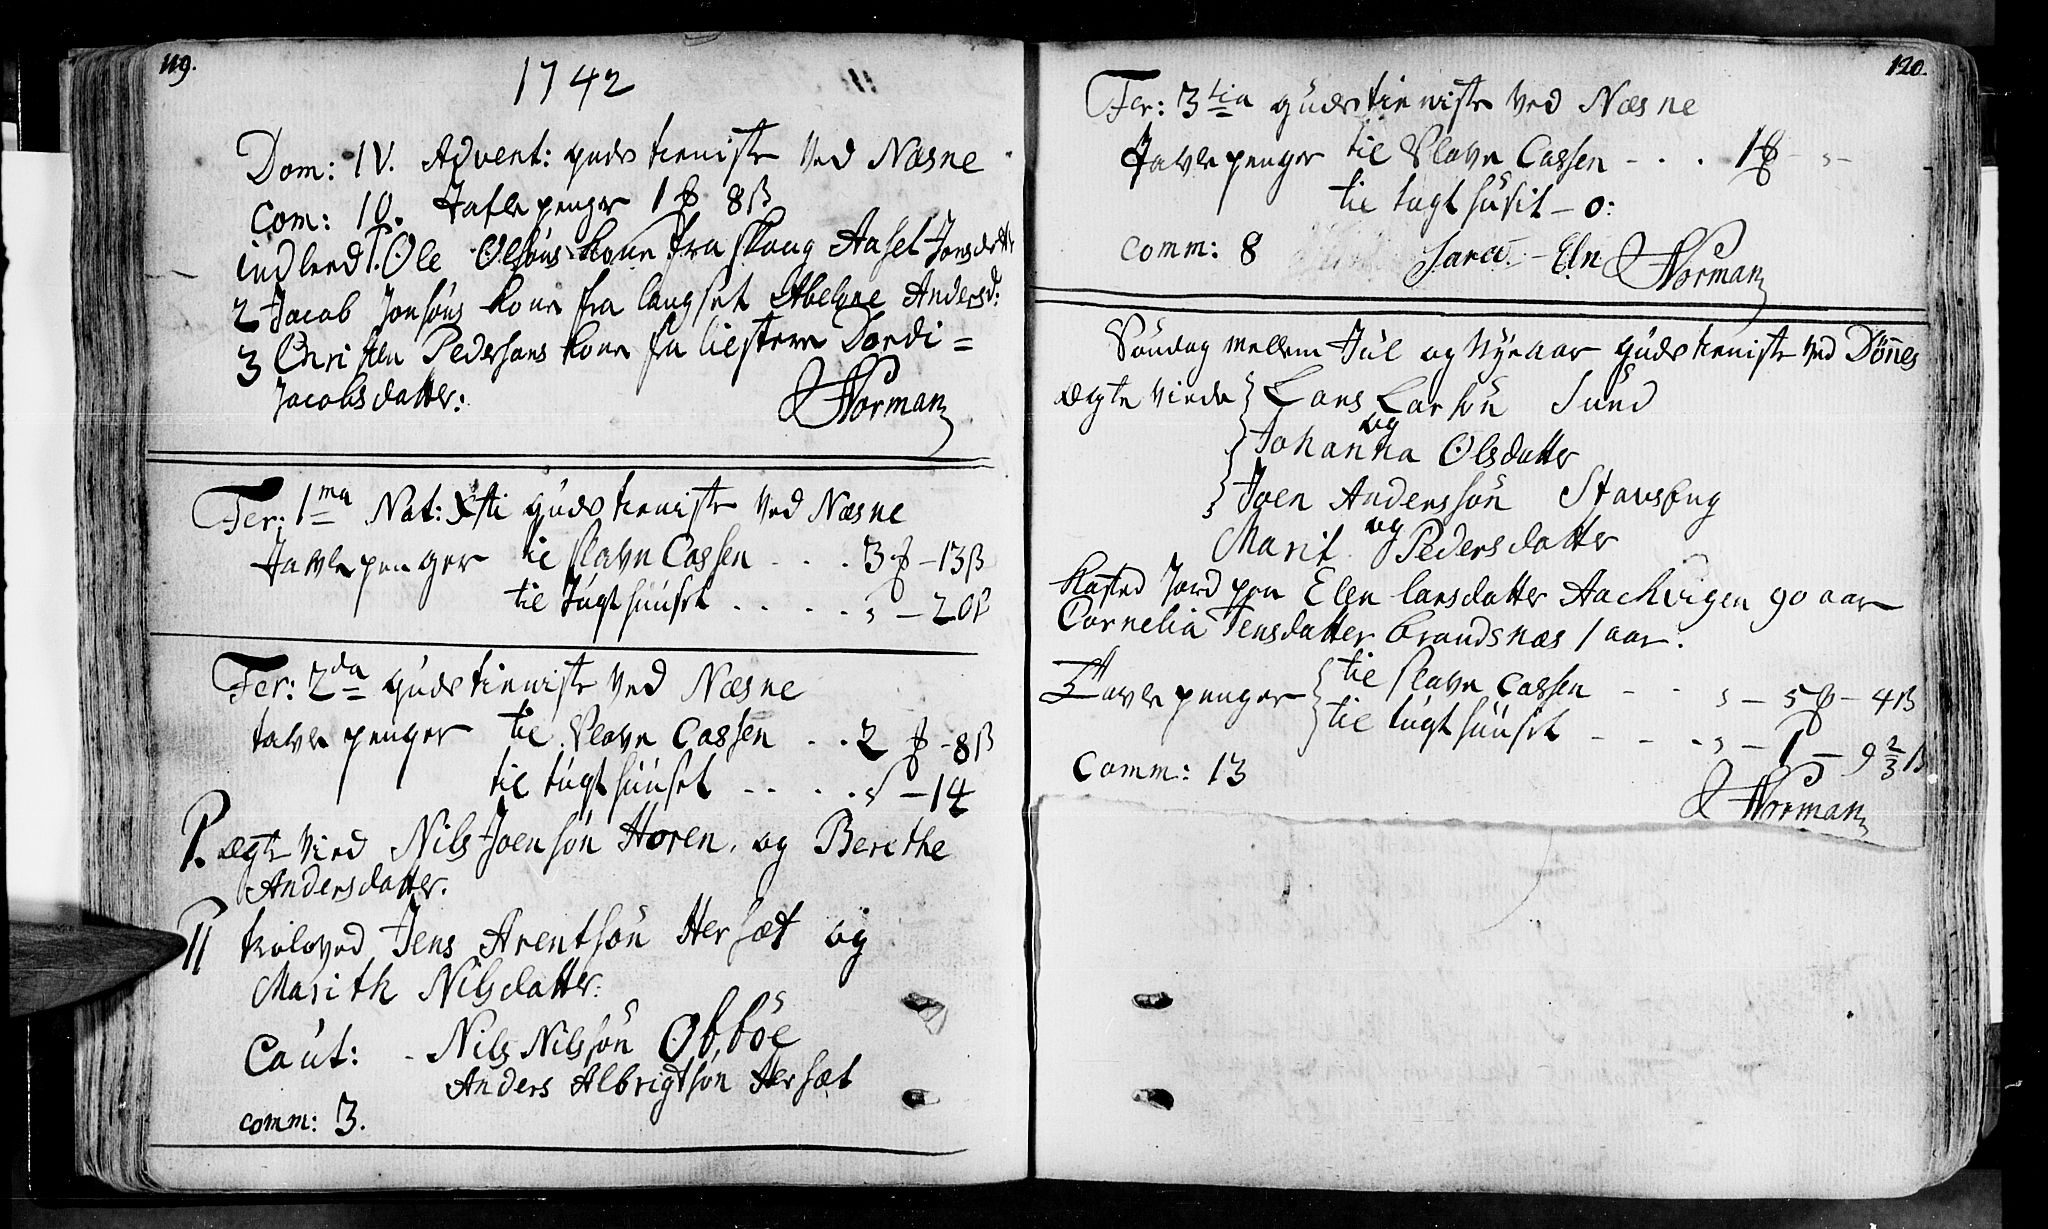 119.
1742
Dom: IV. Advent: guds tieniste ved Næsne
Com: 10. Tafle penger 1 ℔ 8ß
indleed 1. Ole Olsöns kone fra skoug Aasel Jonsdatter
2 Jacob Jonsöns kone fra langset Abelone Andersd:
3 Christen Pedersons kone fra liesteren Dordi=
Jacobsdatter:
Norman
Fer: 1ma Nat: Xsti guds tieniste ved Næsne
Tavle penger til slave Cassen . . . 3 ℔ - 13ß
til tugt huuset . . . . . „ - 20ß
Fer: 2da guds tieniste ved Næsne
tavle penger til Slave Cassen . . 2 ℔ - 8ß
til tugt huuset . . . . „ - 14
P. ægte vied Nils Joensön Horen, og Berethe
Andersdatter.
P troloved Jens Arentsön Hersæt og
Marith Nilsdatter:
Caut: - Nils Nilssön Obböe
Anders Albrigtsön Hersæt
comm: 3.
120.
Fer: 3tia guds tieniste ved Næsne
Tavle penger til Slave Cassen - . . 1℔ - „ -
til tugt huset - 0:
comm: 8 Sara - Eln
Norman
Söndag mellem Jul og Nyeaar guds tieniste ved Dönes
ægte viede Lars Larsön Sund
og
Johanna Olsdatter
Joen Anderssön Stavseng
og
Marit Pedersdatter
kasted Jord paa Elen larsdatter Aackvigen 90 aar
Cornelia Jensdatter brandsnæs 1 aar.
Tavle penger til slave Cassen - - „ - 5℔ - 4ß
til tugt huuset - - - „ - 1 - 9 2/3 ß
Comm: 13
Norman